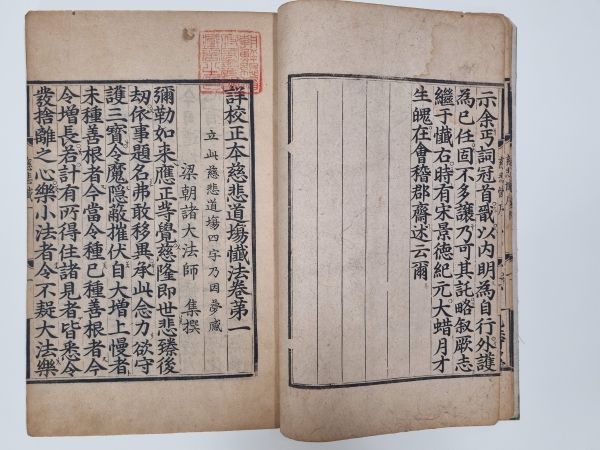 示余丐詞冠首戢以内明為自行外護
為已任固不多讓乃可其託略叙厥志
繼于懺右時有宋景德紀元大蜡月才
生魄在會稽郡齋述云爾
詳校正本慈悲道場懺法卷第一
立此慈悲道場四字乃因夢感
梁朝諸大法師 集撰
彌勒如来應正等覺慈隆即世悲臻後
劫依事題名弗敢移異承此念力欲守
護三寶令魔隠蔽摧伏自大增上慢者
未種善根者今當令種已種善根者今
令增長若計有所得住諸見者皆悉令
發捨離之心樂小法者令不疑大法樂